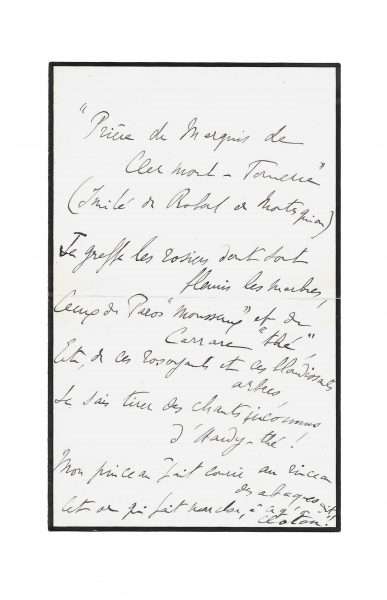 "Prière du Marquis de
Clermont-Tonnerre"
(Imité de Robert de Montesquiou)
Je greffe les rosiers dont sont
fleuris les marbres,
Ceux de Paros "mousseux" et de
Carrare "thé",
Et, de ces rosoyants et ces blandissants
arbres
Je sais tirer des chants inconnus
d'Hardy-thé!
Mon pinceau fait courir au rinceau
des abaques
Cet or qui fait marcher, à